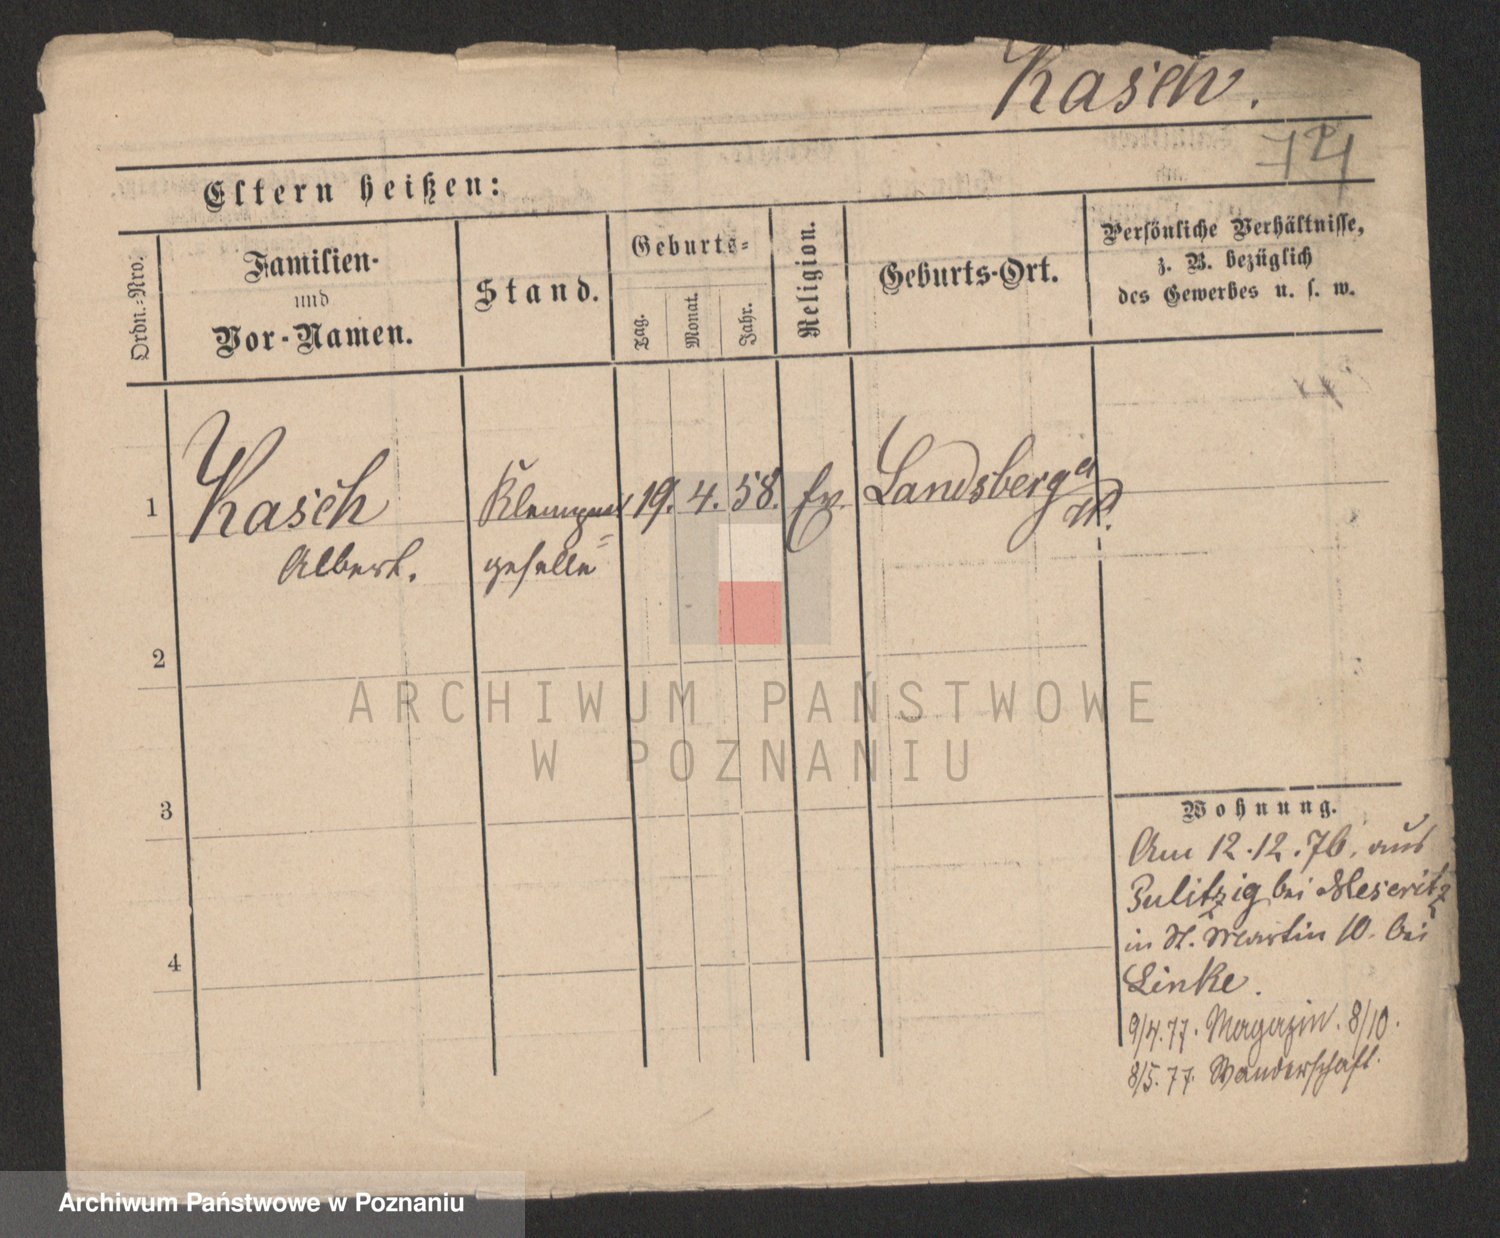 Kasch.
74
Eltern heißen:
Ordn.-Nro.
Familien-
und
Vor-Namen.
Stand.
Geburts-
Tag.
Monat.
Jahr.
Religion.
Geburts-Ort.
Persönliche Verhältnisse,
z. B. bezüglich
des Gewerbes u. s. w.
1
Kasch
Albert.
Klempner
geselle
19. 4. 58. Ev.
Landsberg a
W.
2
3
4
Wohnung.
Am 12.12.76. aus
bei Meseritz
in St. Martin 10. bei
Linke.
9/4.77. Magazin. 8/10.
8/5.77. Wanderschaft.
ARCHIWUM PAŃSTWOWE
W POZNANIU
Archiwum Państwowe w Poznaniu